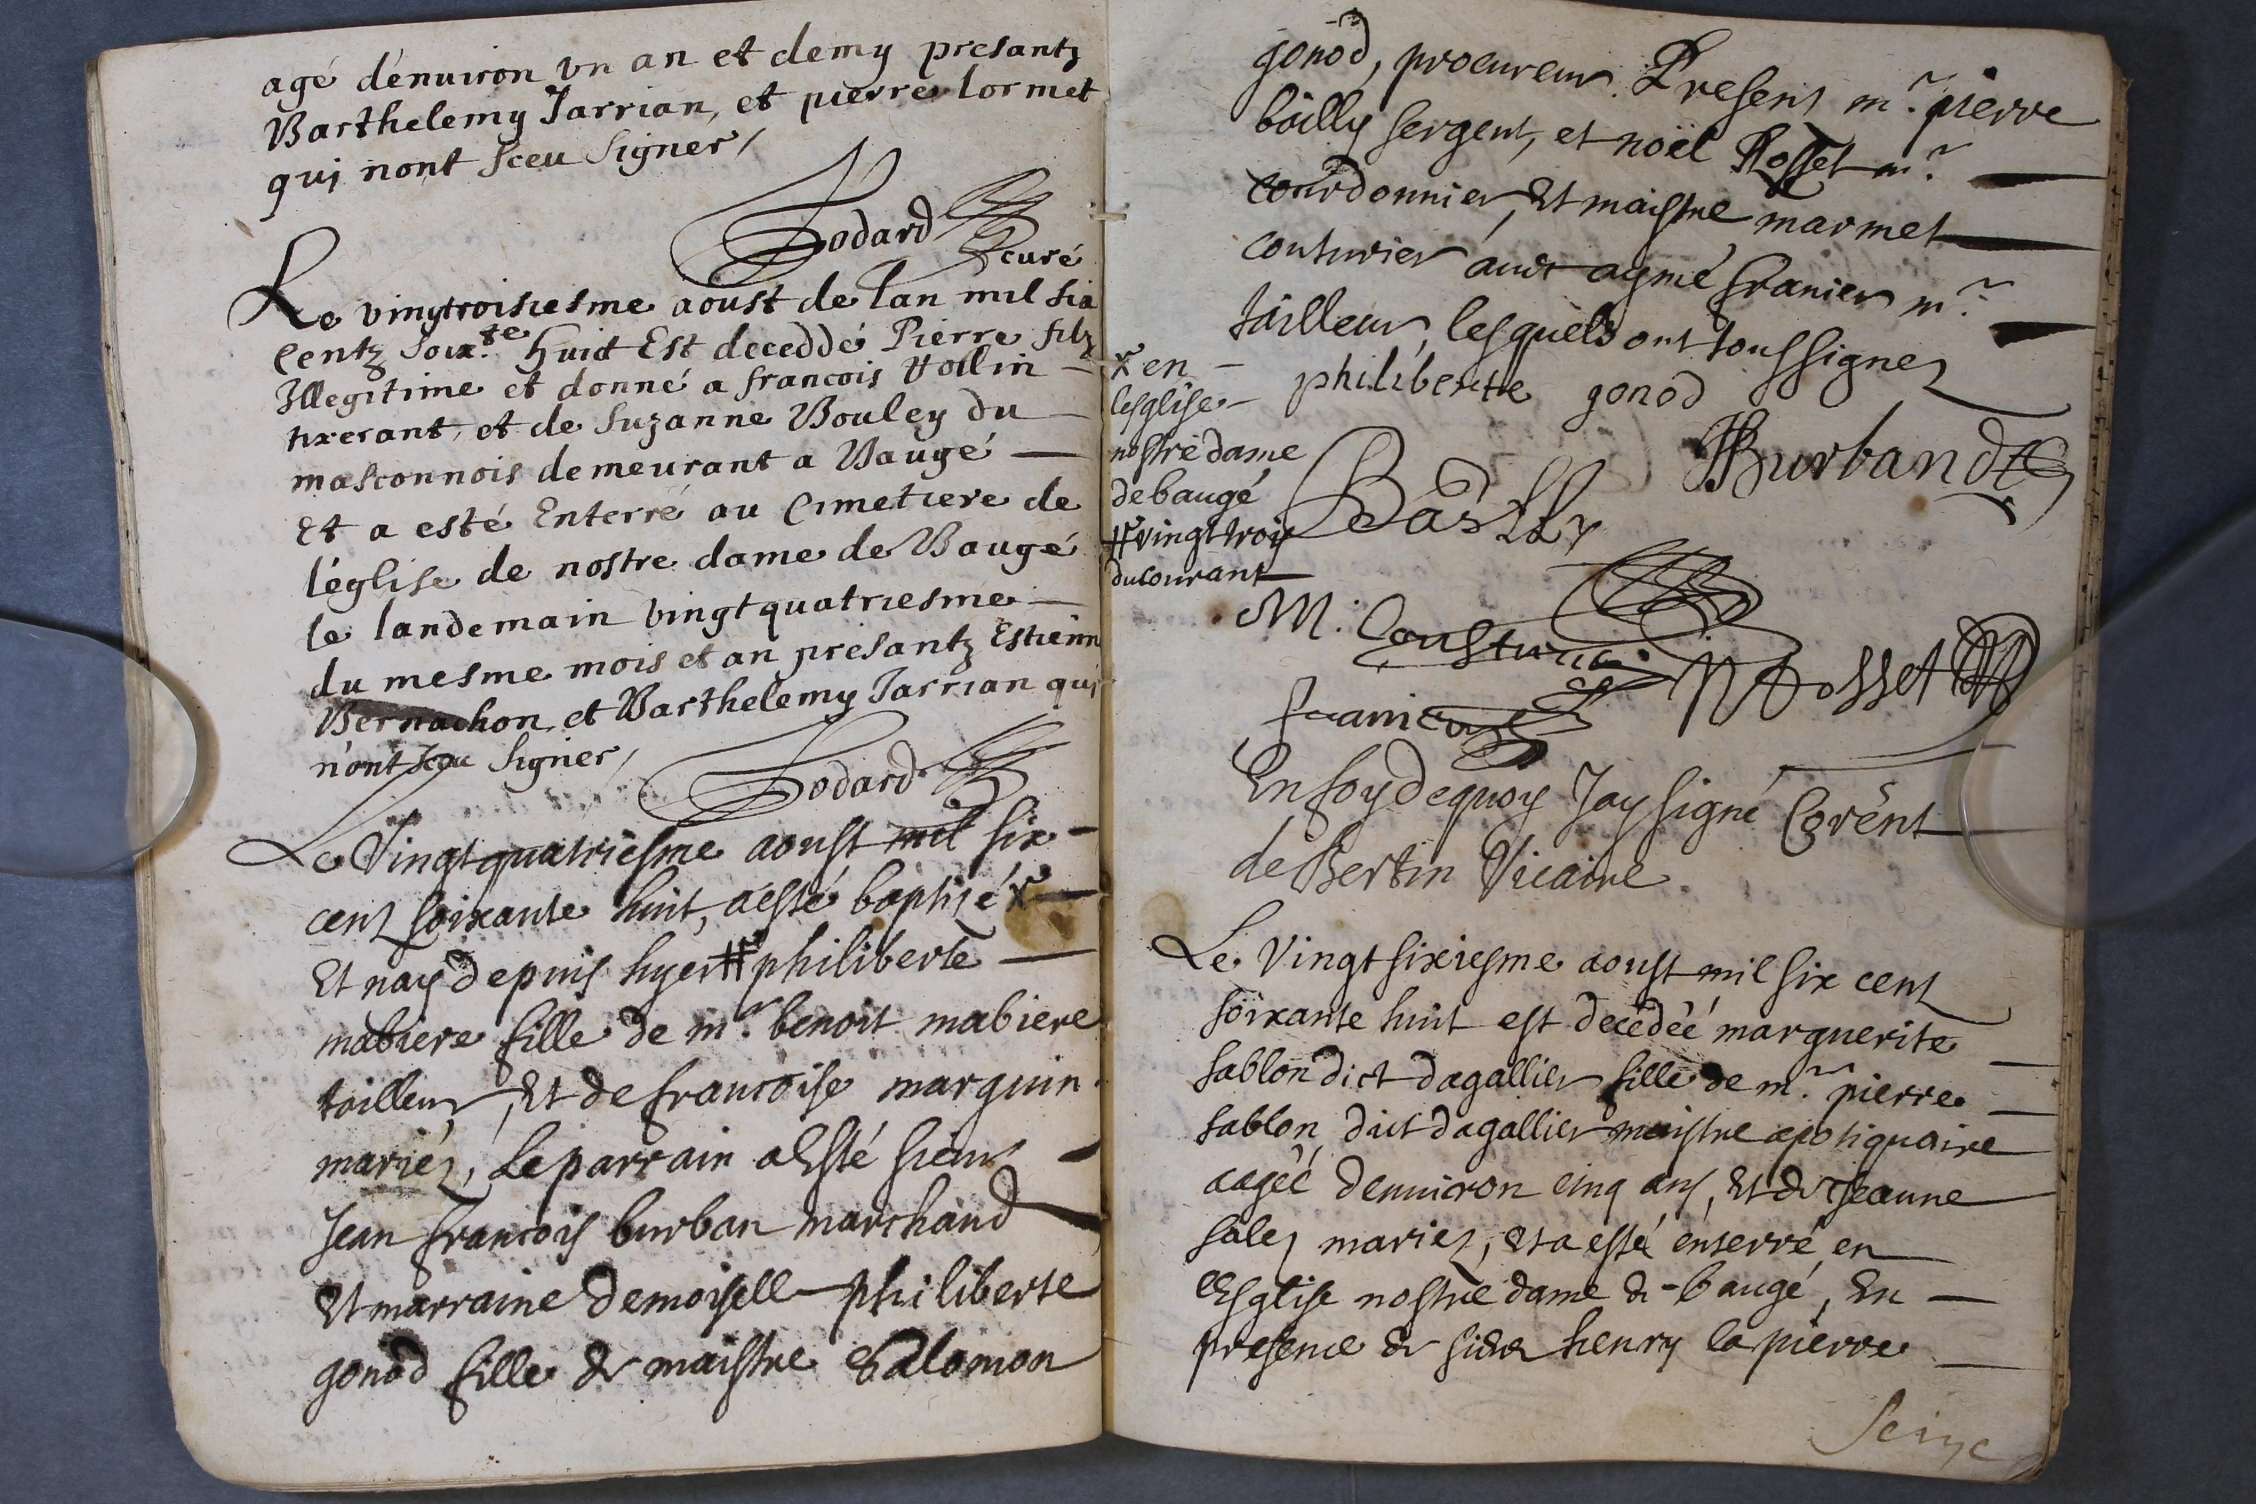 agé d'enuiron vn an et demy presantz
Barthelemy Jarrian, et pierre lormet
qui nont sceu signer /
Godard
curé
Le vingtroisiesme aoust de lan mil six
centz soix.te huict Est deceddé Pierre filz
Illegitime et donné a francois Vollin
tixerant, et de suzanne Bouley du
masconnois demeurant a Baugé
Et a esté Enterré au Cimetiere de
l'église de nostre dame de Baugé
le landemain vingtquatriesme
du mesme mois et an presantz Estienn
Bernachon et Barthelemy Jarrian qui
n'ont sceu signer /
Godard
Le Vingtquatriesme aoust mil six
cent soixante huit, a esté baptisé x
Et nay depuis hyer # philiberte
mabiere fille de m.r benoit mabiere
tailleur, Et de francoise marguin
mariéz, Le parrain a Esté sieur
Jean francois burban marchand
Et marraine demoiselle philiberte
gonod fille de maistre Salomon
gonod, procureur. Present m.r pierre
bailly sergent, et noël Rosset m.r
courdonnier, Et maistre marmet
couturier audt aymé franier m.r
tailleur, lesquels ont tous signez
x en
lesglise
nostre dame
de baugé
# vingt trois
du courant
philiberte gonod
Burband
Bailly
M. Cousturier
N Rosset
franier
En foy de quoy Jay signé Corent
de Bertin Vicaire
Le Vingt sixiesme aoust mil six cent
soixante huit est décédéé marguerite
sablon dict dagallier fille de m.r pierre
sablon, dict dagallier maistre apotiquaire
aagéé denuiron cinq ans, Et de Jeanne
salez mariez, Et a esté enterré en
lEsglise nostre dame de baugé, En
presence de sieur henry lapierre